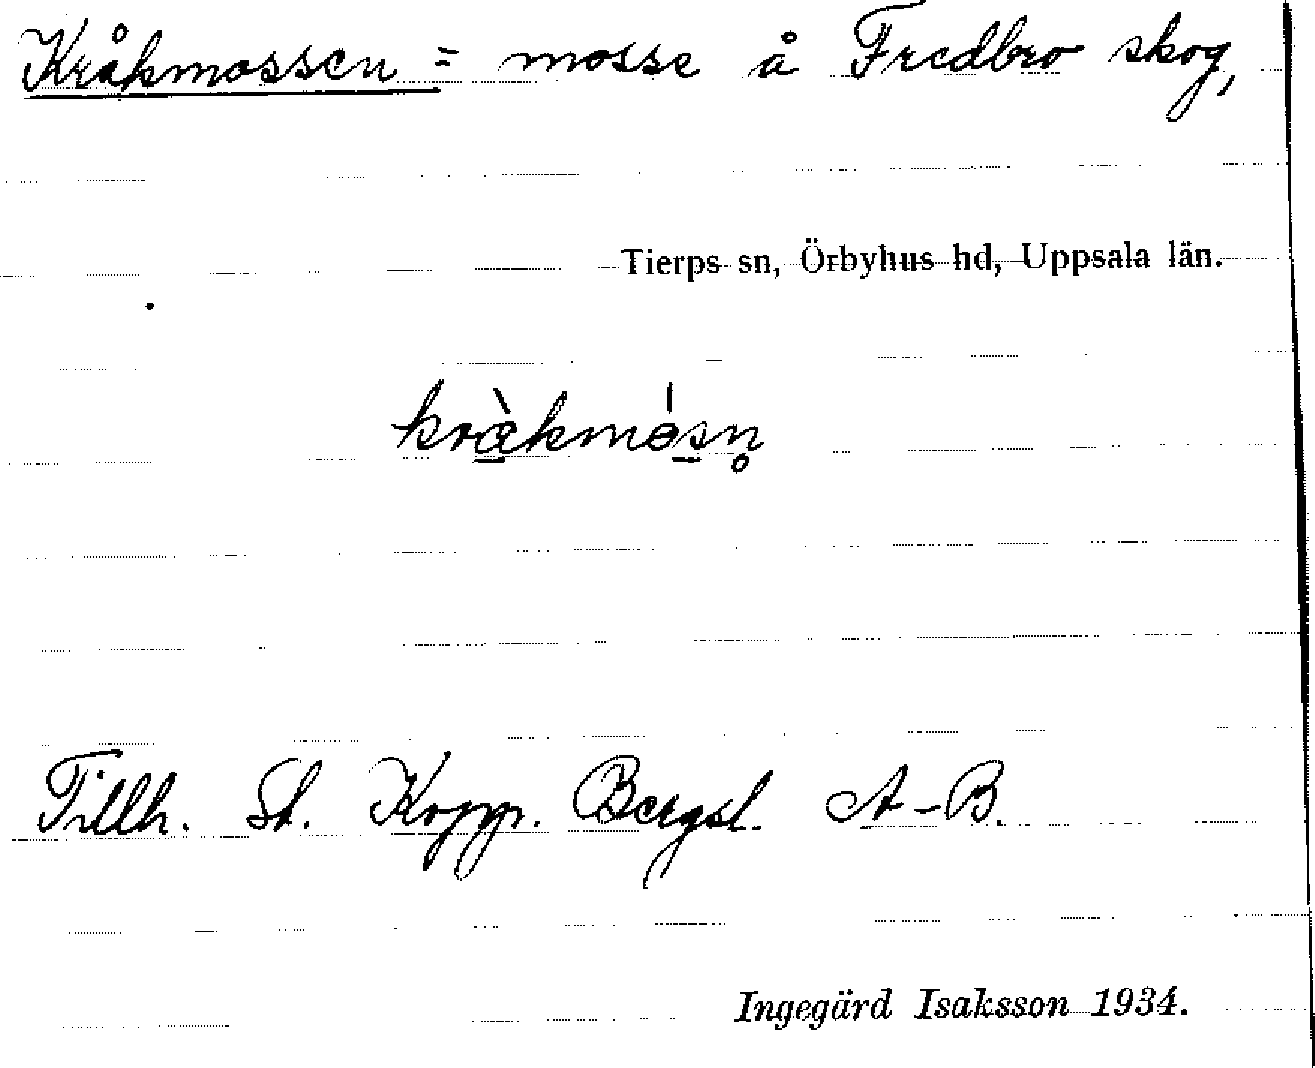 Kråkmossen = mosse å Fredbro skog,
Tierps sn, Örbyhus hd, Uppsala län.
kræ̀kmósn̥
Tillh. St. Kopp. Bergsl. A-B.
Ingegärd Isaksson 1934.